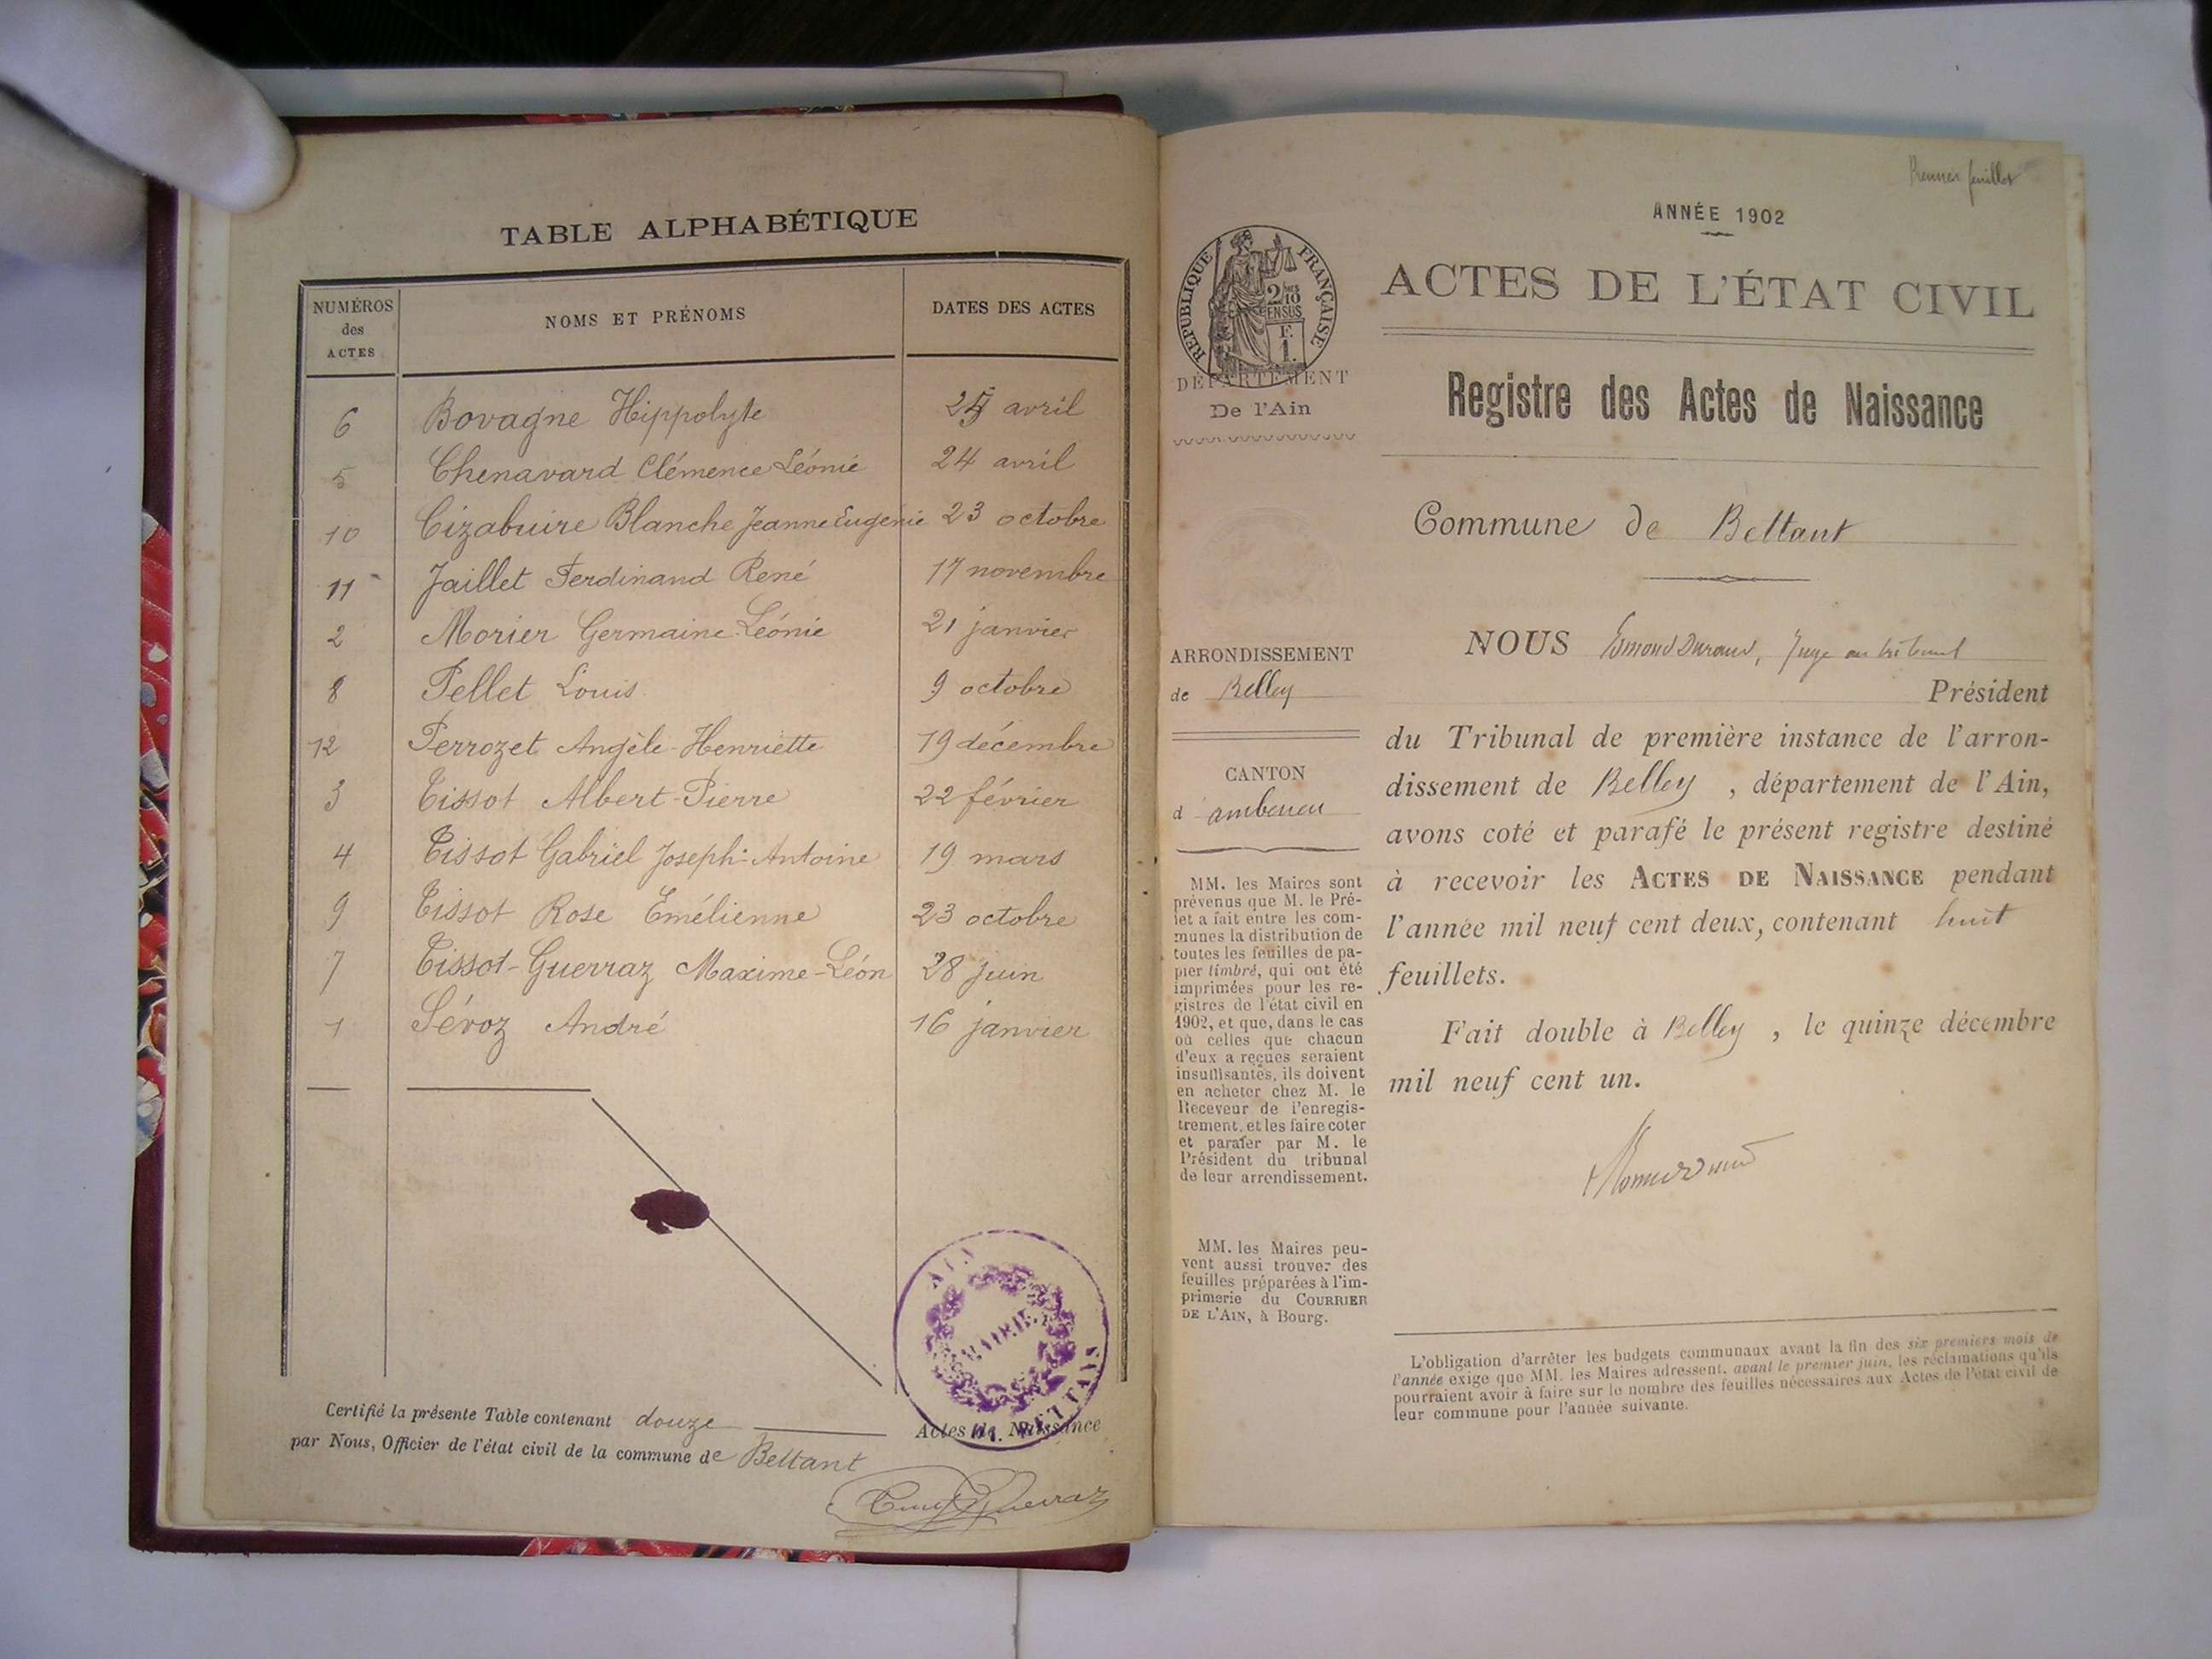 TABLE ALPHABÉTIQUE
NUMÉROS des ACTES
NOMS ET PRÉNOMS
DATES DES ACTES
6 Bovagne Hippolyte avril
5 Chenavard Clémence Léonie 24 avril
10 Cizabuire Blanche Jeanne Eugenie 23 octobre
11 Jaillet Ferdinand René 17 novembre
2 Morier Germaine-Léonie 21 janvier
8 Pellet Louis 9 octobre
12 Perrozet Angèle-Henriette 19 décembre
3 Tissot Albert-Pierre 22 février
4 Tissot Gabriel Joseph-Antoine 19 mars
9 Tissot Rose Emélienne 23 octobre
7 Tissot-Guerraz Maxime-Léon 28 juin
1 Sévoz André 16 janvier
AIN
MAIRIE
BETTANT
Certifié la présente Table contenant douze Actes de Naissance
par Nous, Officier de l'état civil de la commune de Bettant
Guerraz
Premier feuillet
ANNÉE 1902
RÉPUBLIQUE FRANÇAISE
2/10
EN SUS
F.
1.
DÉPARTEMENT
De l'Ain
ARRONDISSEMENT
de Belley
CANTON
MM. les Maires sont
prévenus que M. le Pré-
fet a fait entre les com-
munes la distribution de
toutes les feuilles de pa-
pier timbré, qui ont été
imprimées pour les re-
gistres de l'état civil en
1902, et que, dans le cas
où celles que chacun
d'eux a reçues seraient
insuffisantes, ils doivent
en acheter chez M. le
Receveur de l'enregis-
trement, et les faire coter
et parafer par M. le
Président du tribunal
de leur arrondissement.
MM. les Maires peu-
vent aussi trouver des
feuilles préparées à l'im-
primerie du COURRIER
DE L'AIN, à Bourg.
ACTES DE L'ÉTAT CIVIL
Registre des Actes de Naissance
Commune de Bettant
NOUS Durand, Juge au tribunal
Président
du Tribunal de première instance de l'arron-
dissement de Belley , département de l'Ain,
avons coté et parafé le présent registre destiné
à recevoir les ACTES DE NAISSANCE pendant
l'année mil neuf cent deux, contenant huit
feuillets.
Fait double à Belley , le quinze décembre
mil neuf cent un.
L'obligation d'arrêter les budgets communaux avant la fin des six premiers mois de
l'année exige que MM. les Maires adressent, avant le premier juin, les réclamations qu'ils
pourraient avoir à faire sur le nombre des feuilles nécessaires aux Actes de l'état civil de
leur commune pour l'année suivante.